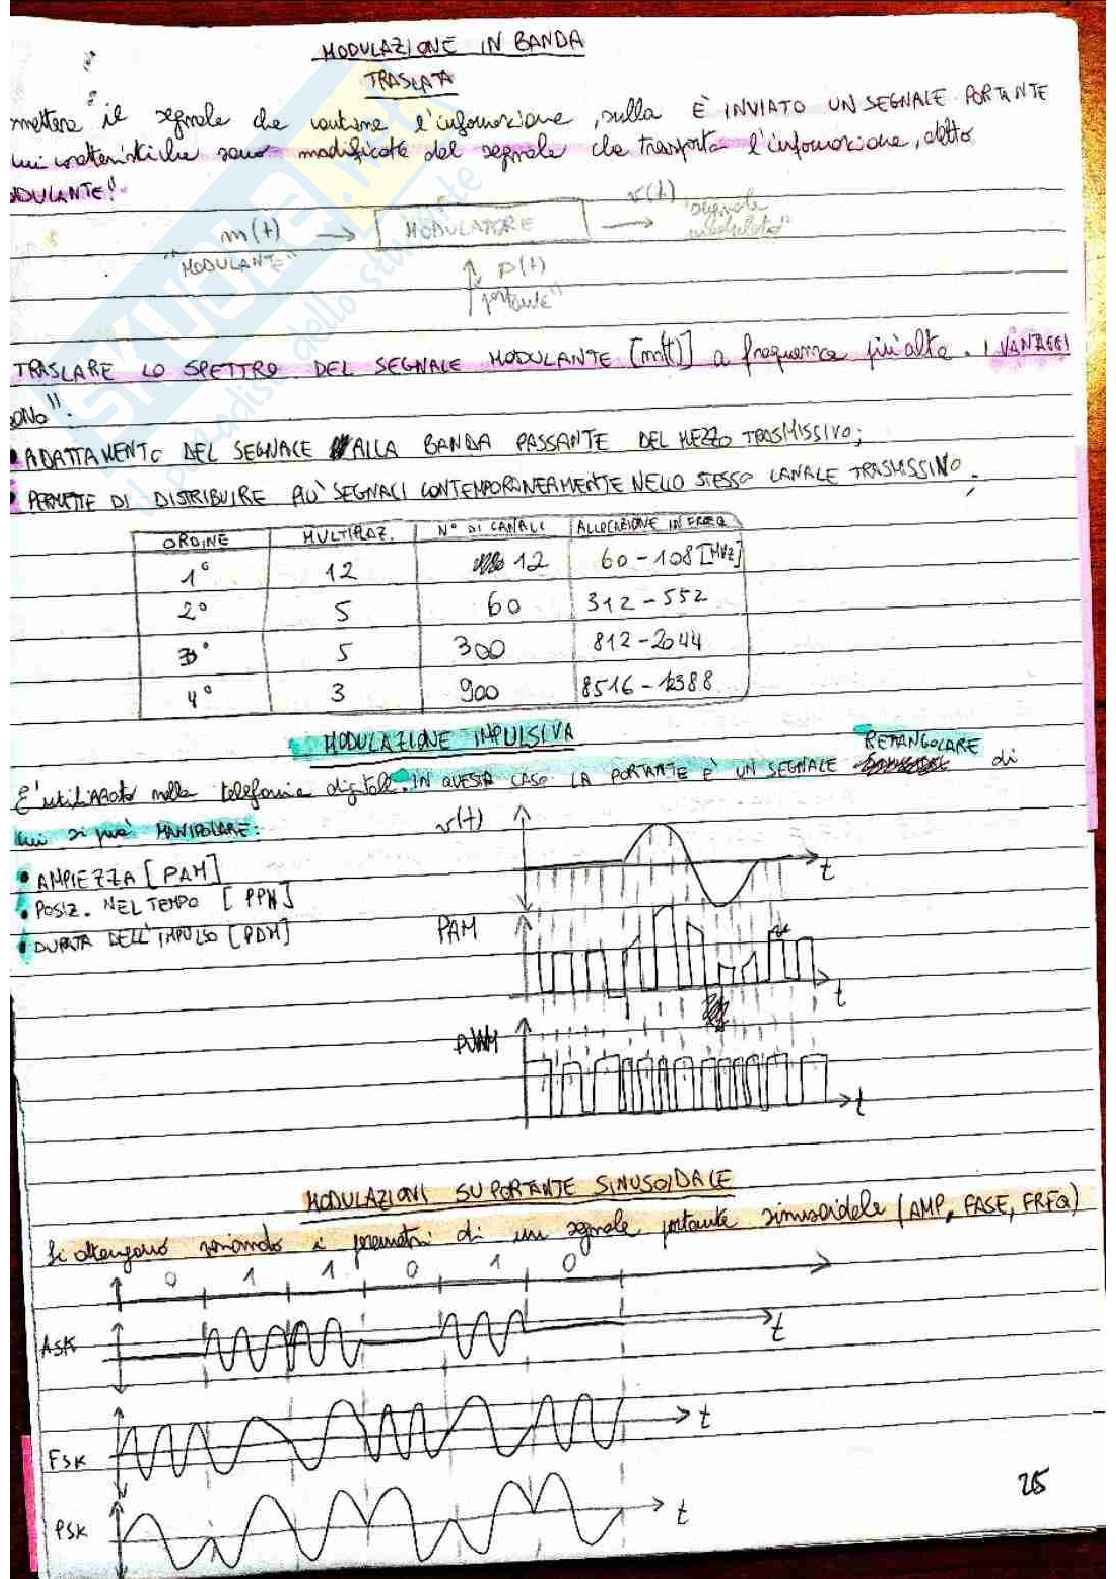 MODULAZIONE IN BANDA
TRASLATA
mettere il segnale che contiene l'informazione, sulla È INVIATO UN SEGNALE PORTANTE
cui caratteristiche sono modificate dal segnale che trasporta l'informazione, detto
ODULANTE".
m(t) MODULATORE v(t) "segnale modulato"
"MODULANTE"
p(t)
"portante"
TRASLARE LO SPETTRO DEL SEGNALE MODULANTE [m(t)] a frequenza più alta. I VANTAGGI
SONO":
• ADATTAMENTO DEL SEGNALE ALLA BANDA PASSANTE DEL MEZZO TRASMISSIVO;
• PERMETTE DI DISTRIBUIRE PIÙ SEGNALI CONTEMPORANEAMENTE NELLO STESSO CANALE TRASMISSIVO.
ORDINE MULTIPLAZ. N° DI CANALI ALLOCAZIONE IN FREQ
1° 12 12 60-108 [MHz]
2° 5 60 312-552
3° 5 300 812-2044
4° 3 900 8516-12388
MODULAZIONE IMPULSIVA
RETANGOLARE
E' utilizzato nella telefonia digitale. IN QUESTA CASO LA PORTANTE È UN SEGNALE di
cui si può MANIPOLARE:
v(t)
t
• AMPIEZZA [PAM]
• POSIZ. NEL TEMPO [PPM]
• DURATA DELL'IMPULSO [PDM]
PAM
t
PWM
t
MODULAZIONI SU PORTANTE SINUSOIDALE
Si ottengono variando i parametri di un segnale portante sinusoidale (AMP, FASE, FREQ)
0 1 1 0 1 0
ASK
t
FSK
t
PSK
t
25
SKUOLA.NET
il paradiso dello studente